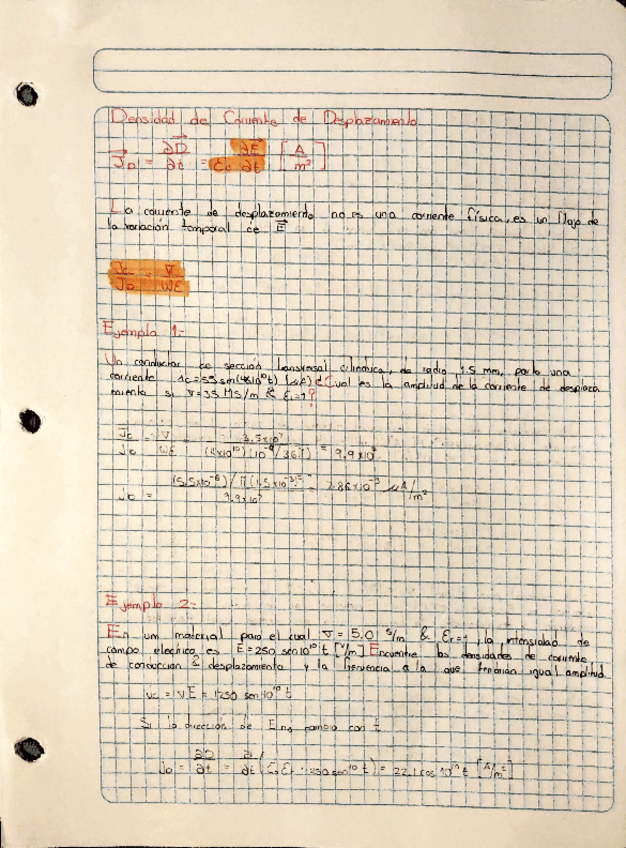 Densidad de Corriente de Desplazamiento
J_D = ∂D/∂t = ε₀ ∂E/∂t [A/m²]
La corriente de desplazamiento no es una corriente física, es un flujo de
la variación temporal de E
Jc/J_D = ∇/Wε
Ejemplo 1:-
Un conductor de sección transversal cilíndrica, de radio 1.5 mm, porta una
corriente
(μA) ¿Cual es la amplitud de la corriente de desplaza
miento si ∇=35 MS/m & εr=1?
Jc/J_D = ∇/Wε = 9.9x10
J_D = = 7.86x10⁻³ μA/m²
Ejemplo 2:-
En un material para el cual ∇ = 5.0 S/m & εr=1, la intensidad de
campo electrico es E=250 sen10¹⁰ t [V/m] Encuentre las densidades de corriente
de conducción & desplazamiento y la frecuencia a la que tendrían igual amplitud
= ∇E = 1250 sen10¹⁰ t
Si la dirección de E no cambia con t
J_D = ∂D/∂t = ∂/∂t (ε₀εr · 250 sen10¹⁰ t) = 22.1 cos 10¹⁰ t [A/m²]